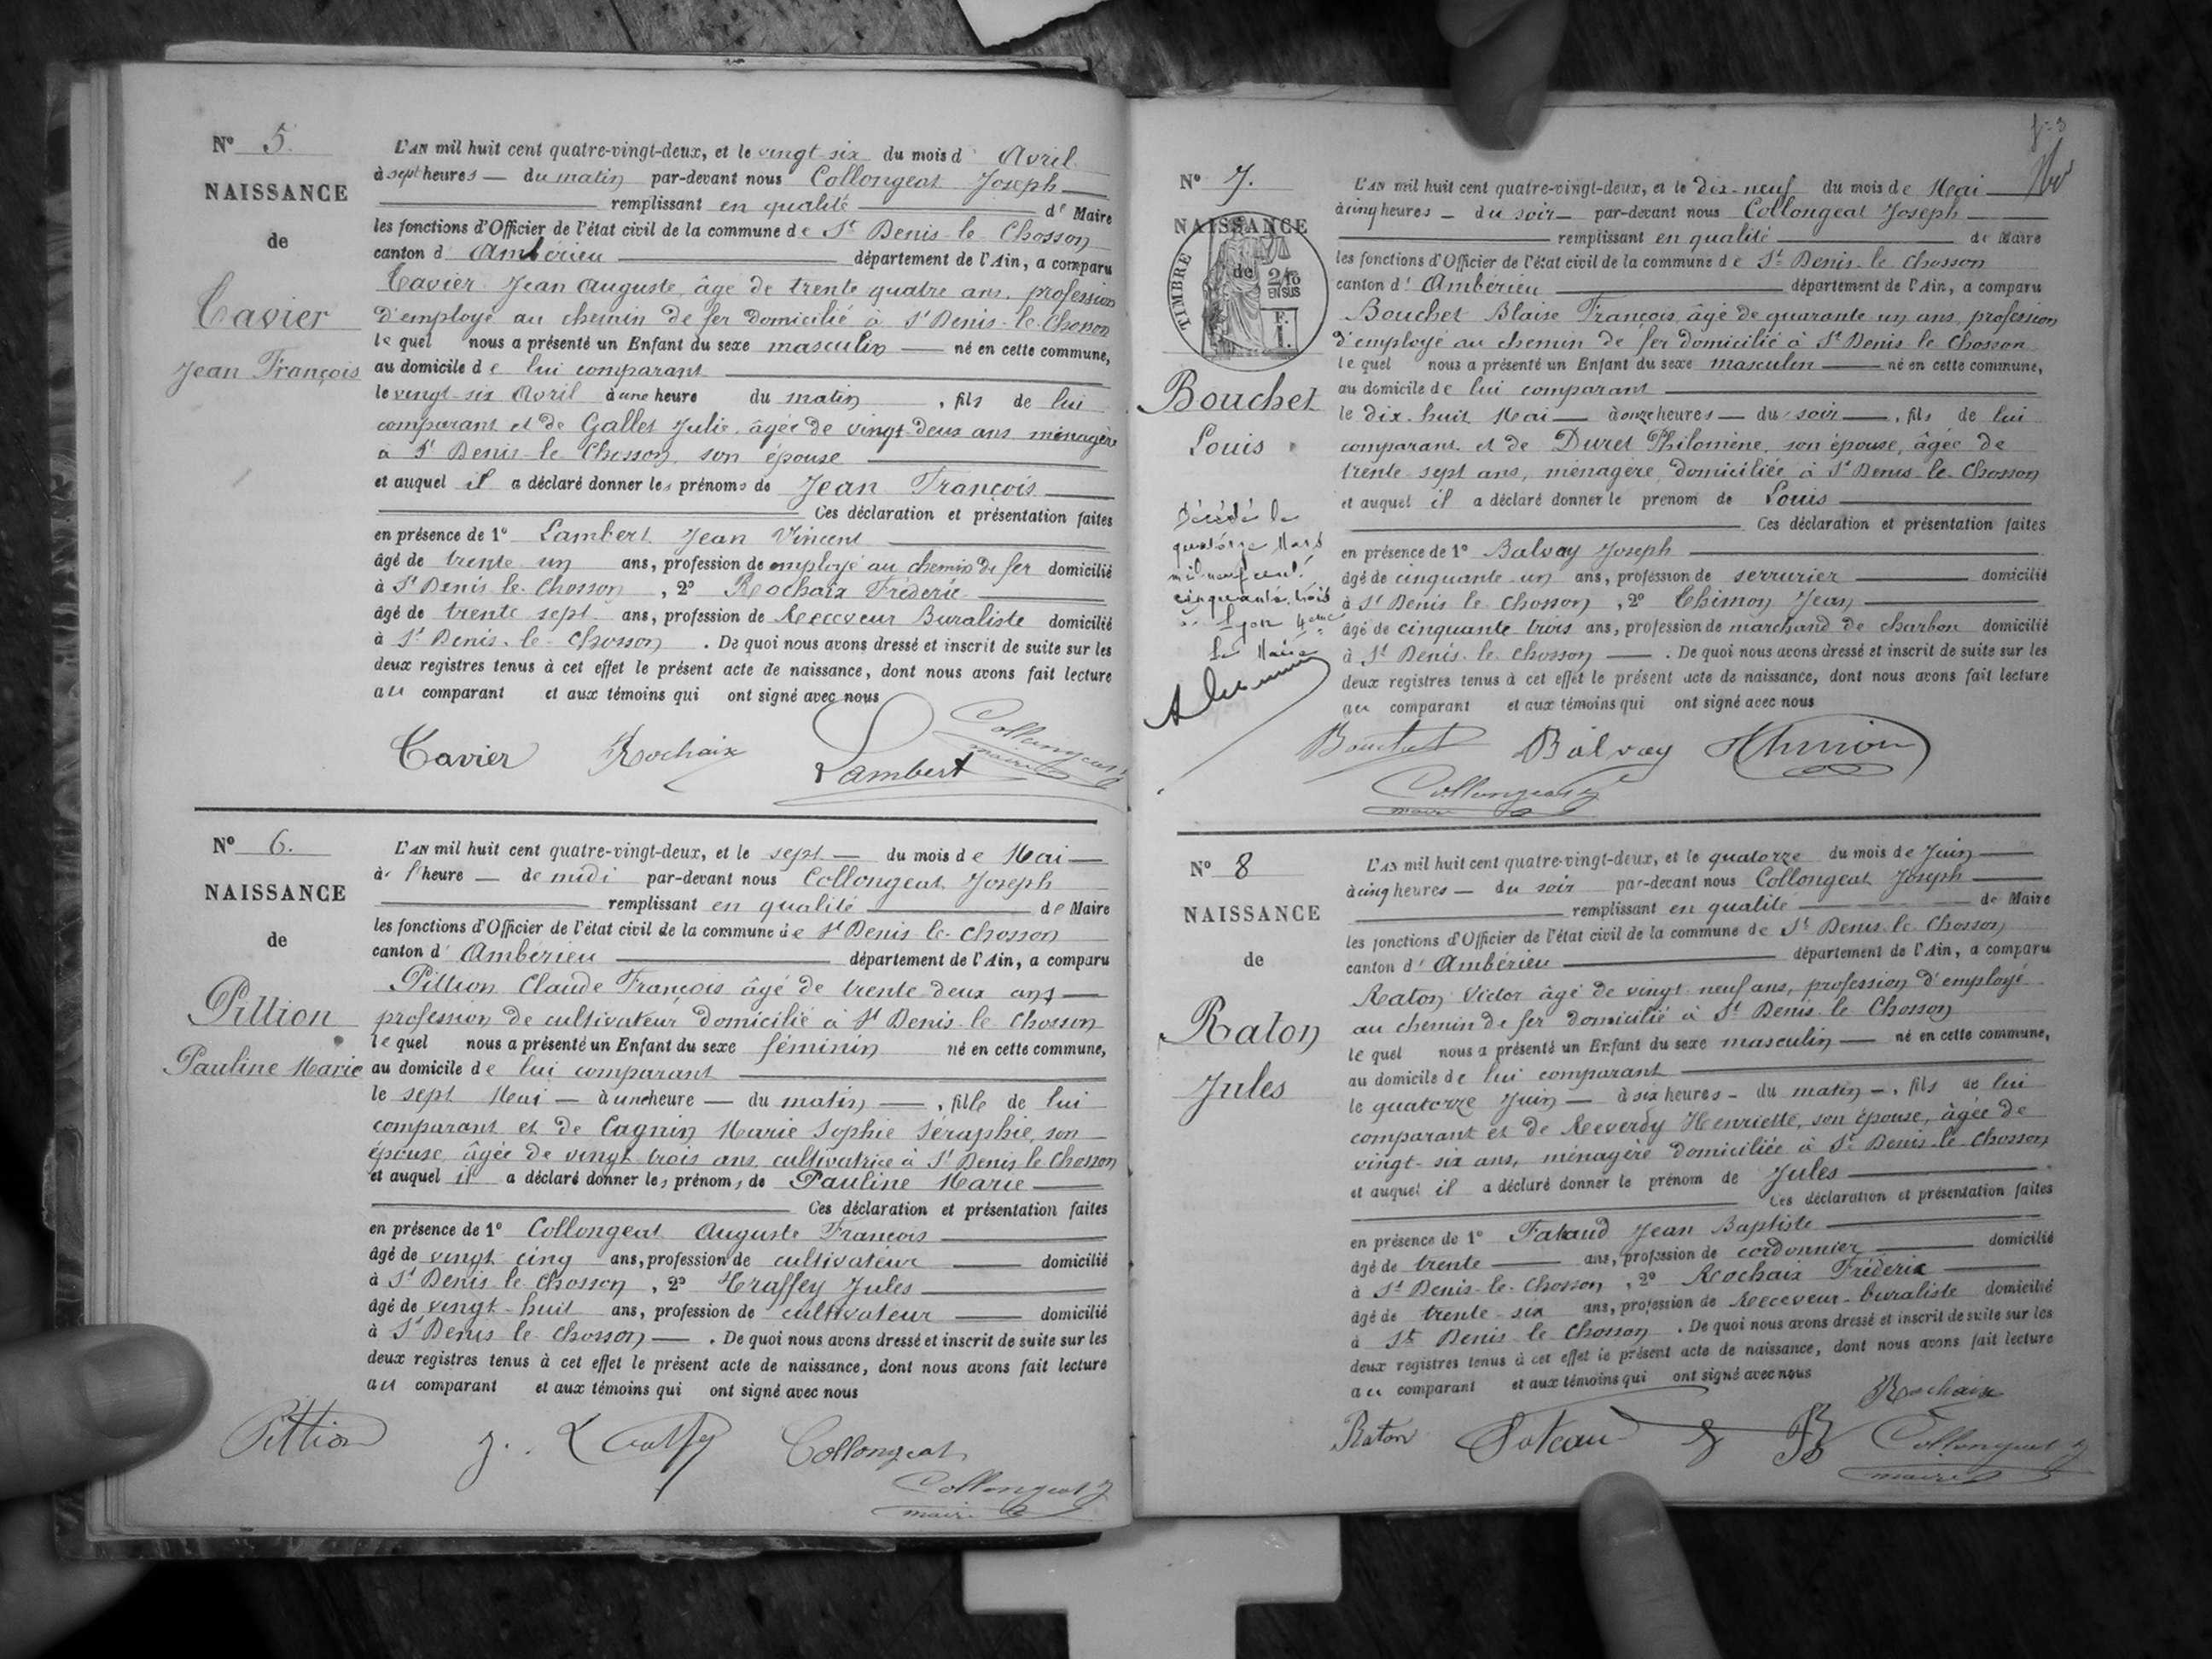 N° 5.
NAISSANCE
de
Tavier
Jean François
L'AN mil huit cent quatre-vingt-deux, et le vingt-six du mois d' Avril
à sept heures — du matin par-devant nous Collongeat Joseph
remplissant en qualité de Maire
les fonctions d'Officier de l'état civil de la commune de St Denis-le-Chosson
canton d' Ambérieu département de l'Ain, a comparu
Tavier Jean Auguste, âgé de trente quatre ans, profession
d'employé au chemin de fer domicilié à St Denis-le-Chosson
lequel nous a présenté un Enfant du sexe masculin — né en cette commune,
au domicile de lui comparant
le vingt-six Avril à une heure du matin, fils de lui
comparant et de Gallet Julie, âgée de vingt-deux ans ménagère
à St Denis-le-Chosson, son épouse
et auquel il a déclaré donner les prénoms de Jean François
Ces déclaration et présentation faites
en présence de 1° Lambert Jean Vincent
âgé de trente un ans, profession de employé au chemin de fer domicilié
à St Denis-le-Chosson, 2° Rochaix Fréderic
âgé de trente sept ans, profession de Receveur Buraliste domicilié
à St Denis-le-Chosson. De quoi nous avons dressé et inscrit de suite sur les
deux registres tenus à cet effet le présent acte de naissance, dont nous avons fait lecture
au comparant et aux témoins qui ont signé avec nous
Tavier Rochaix Lambert Collongeat
maire
N° 6.
NAISSANCE
de
Pittion
Pauline Marie
L'AN mil huit cent quatre-vingt-deux, et le sept — du mois de Mai —
à l'heure — de midi par-devant nous Collongeat Joseph
remplissant en qualité de Maire
les fonctions d'Officier de l'état civil de la commune de St Denis-le-Chosson
canton d' Ambérieu département de l'Ain, a comparu
Pittion Claude François âgé de trente deux ans —
profession de cultivateur domicilié à St Denis-le-Chosson
lequel nous a présenté un Enfant du sexe féminin né en cette commune,
au domicile de lui comparant
le sept Mai — à une heure — du matin —, fille de lui
comparant et de Cagnin Marie Sophie Séraphie, son
épouse, âgée de vingt trois ans, cultivatrice à St Denis le Chosson
et auquel il a déclaré donner les prénoms de Pauline Marie —
Ces déclaration et présentation faites
en présence de 1° Collongeat Auguste François
âgé de vingt cinq ans, profession de cultivateur — domicilié
à St Denis le Chosson, 2° Traffey Jules
âgé de vingt-huit ans, profession de cultivateur — domicilié
à St Denis le Chosson —. De quoi nous avons dressé et inscrit de suite sur les
deux registres tenus à cet effet le présent acte de naissance, dont nous avons fait lecture
au comparant et aux témoins qui ont signé avec nous
Pittion J. Collongeat
Collongeat J
maire
f. 3
N° 7.
NAISSANCE
de
TIMBRE
2/10
EN SUS
F.
1.
Bouchet
Louis
Décédé le
quatorze Mars
mil neuf cent
cinquante trois
à Lyon 4eme
Le Maire
L'AN mil huit cent quatre-vingt-deux, et le dix-neuf du mois de Mai —
à cinq heures — du soir — par-devant nous Collongeat Joseph
remplissant en qualité de Maire
les fonctions d'Officier de l'état civil de la commune de St Denis-le-Chosson
canton d' Ambérieu département de l'Ain, a comparu
Bouchet Blaise François, âgé de quarante un ans, profession
d'employé au chemin de fer domicilié à St Denis le Chosson
lequel nous a présenté un Enfant du sexe masculin — né en cette commune,
au domicile de lui comparant
le dix-huit Mai — à onze heures — du soir —, fils de lui
comparant et de Duret Philomène, son épouse, âgée de
trente sept ans, ménagère, domiciliée à St Denis-le-Chosson
et auquel il a déclaré donner le prénom de Louis
Ces déclaration et présentation faites
en présence de 1° Balvay Joseph
âgé de cinquante-un ans, profession de serrurier domicilié
à St Denis le Chosson, 2° Thimon Jean
âgé de cinquante trois ans, profession de marchand de charbon domicilié
à St Denis-le-Chosson —. De quoi nous avons dressé et inscrit de suite sur les
deux registres tenus à cet effet le présent acte de naissance, dont nous avons fait lecture
au comparant et aux témoins qui ont signé avec nous
Bouchet Balvay Thimon
Collongeat J
maire
N° 8
NAISSANCE
de
Raton
Jules
L'AN mil huit cent quatre-vingt-deux, et le quatorze du mois de Juin —
à cinq heures — du soir par-devant nous Collongeat Joseph
remplissant en qualité de Maire
les fonctions d'Officier de l'état civil de la commune de St Denis le Chosson
canton d' Ambérieu département de l'Ain, a comparu
Raton Victor âgé de vingt neuf ans, profession d'employé
au chemin de fer domicilié à St Denis le Chosson
lequel nous a présenté un Enfant du sexe masculin — né en cette commune,
au domicile de lui comparant
le quatorze Juin — à six heures — du matin —, fils de lui
comparant et de Reverdy Henriette, son épouse, âgée de
vingt-six ans, ménagère domiciliée à St Denis-le-Chosson
et auquel il a déclaré donner le prénom de Jules
Ces déclaration et présentation faites
en présence de 1° Jean Baptiste
âgé de trente ans, profession de cordonnier domicilié
à St Denis-le-Chosson, 2° Rochaix Fréderic
âgé de trente-six ans, profession de Receveur-buraliste domicilié
à St Denis le Chosson. De quoi nous avons dressé et inscrit de suite sur les
deux registres tenus à cet effet le présent acte de naissance, dont nous avons fait lecture
au comparant et aux témoins qui ont signé avec nous
Rochaix
Raton Collongeat J
maire